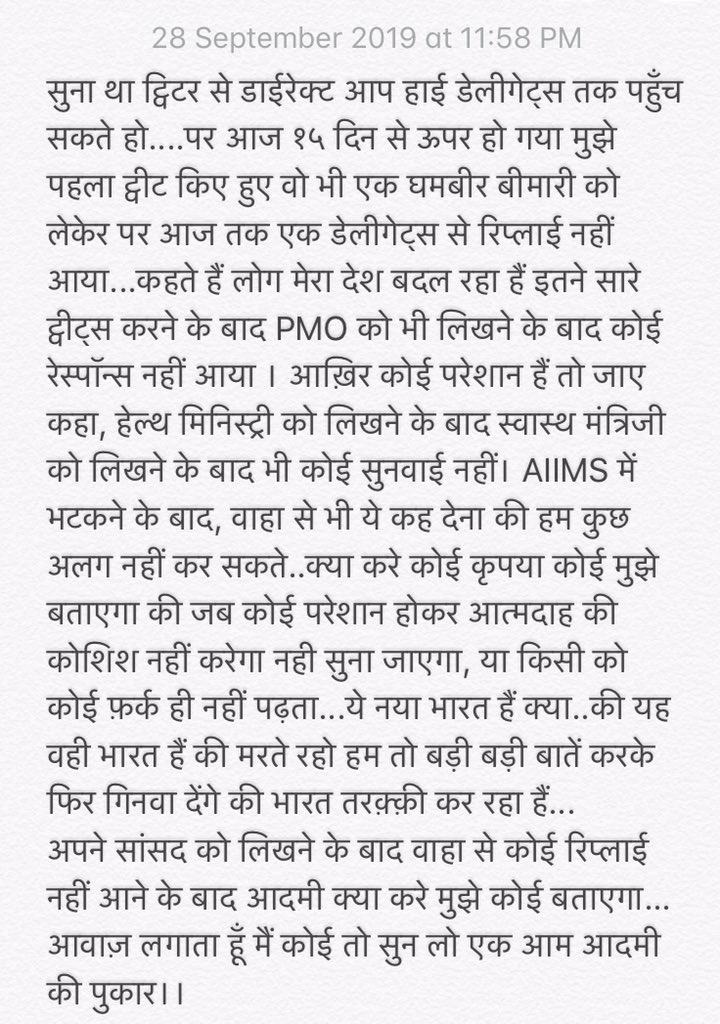 28 September 2019 at 11:58 PM
सुना था ट्विटर से डाईरेक्ट आप हाई डेलीगेट्स तक पहुँच
सकते हो....पर आज १५ दिन से ऊपर हो गया मुझे
पहला ट्वीट किए हुए वो भी एक घमबीर बीमारी को
लेकेर पर आज तक एक डेलीगेट्स से रिप्लाई नहीं
आया...कहते हैं लोग मेरा देश बदल रहा हैं इतने सारे
ट्वीट्स करने के बाद PMO को भी लिखने के बाद कोई
रेस्पॉन्स नहीं आया । आख़िर कोई परेशान हैं तो जाए
कहा, हेल्थ मिनिस्ट्री को लिखने के बाद स्वास्थ मंत्रिजी
को लिखने के बाद भी कोई सुनवाई नहीं। AIIMS में
भटकने के बाद, वाहा से भी ये कह देना की हम कुछ
अलग नहीं कर सकते..क्या करे कोई कृपया कोई मुझे
बताएगा की जब कोई परेशान होकर आत्मदाह की
कोशिश नहीं करेगा नही सुना जाएगा, या किसी को
कोई फ़र्क ही नहीं पढ़ता...ये नया भारत हैं क्या..की यह
वही भारत हैं की मरते रहो हम तो बड़ी बड़ी बातें करके
फिर गिनवा देंगे की भारत तरक़्क़ी कर रहा हैं...
अपने सांसद को लिखने के बाद वाहा से कोई रिप्लाई
नहीं आने के बाद आदमी क्या करे मुझे कोई बताएगा...
आवाज़ लगाता हूँ मैं कोई तो सुन लो एक आम आदमी
की पुकार।।